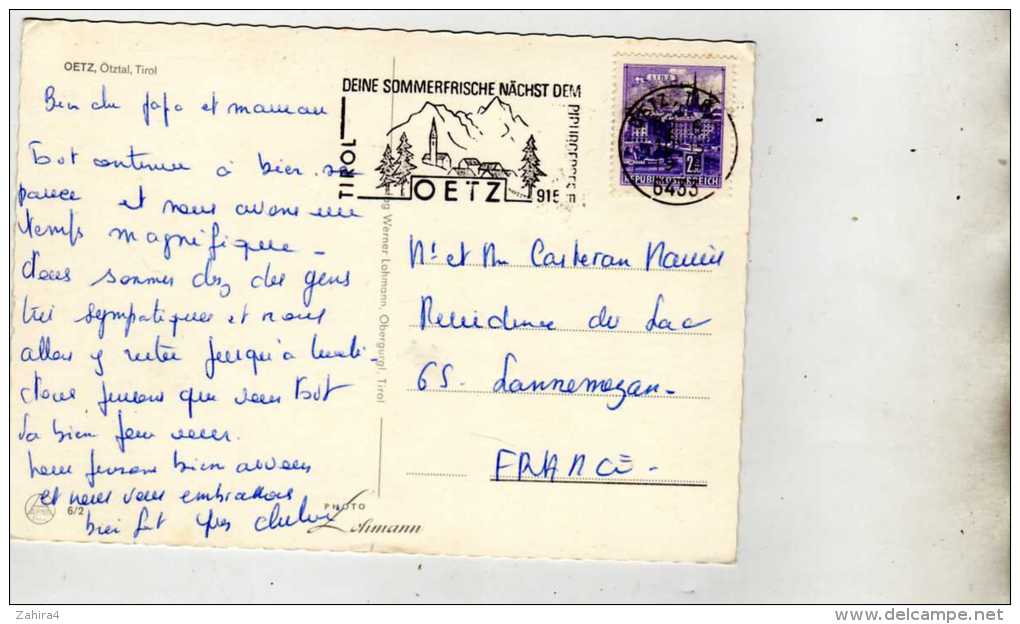 OETZ, Ötztal, Tirol
papa et maman
Tout continue à bien se
passer et nous avons un
temps magnifique
Nous sommes chez des gens
très sympatiques et nous
allons y rester jusqu'à
que vous tout
va bien pour vous.
bien a vous
et nous vous embrassons
bien fort Yves
6/2
PHOTO
Lohmann
Werner Lohmann, Obergurgl, Tirol
DEINE SOMMERFRISCHE NÄCHST DEM
PIBURGERSEE
TIROL
OETZ
915 m
LINZ
2
REPUBLIK ÖSTERREICH
6433
Mr et Mme Casteran
Residence du Lac
65 - Lannemezan -
FRANCE -
Zahira4
www.delcampe.net